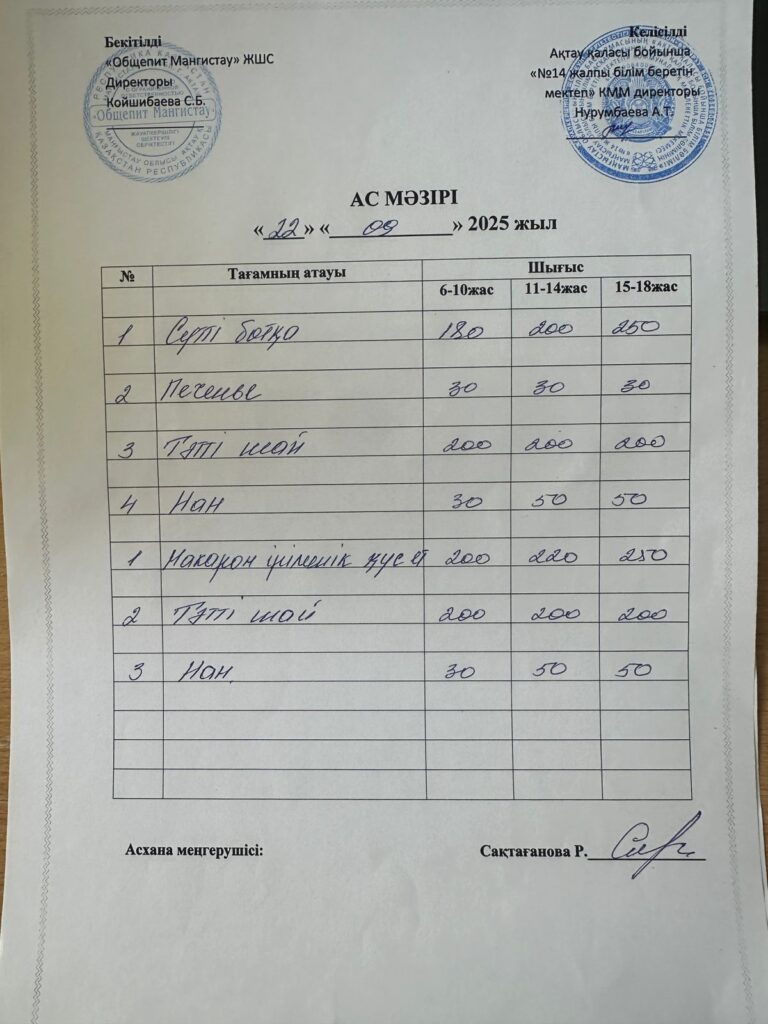 Бекітілді
«Общепит Мангистау» ЖШС
Директоры
Койшибаева С.Б.
Келісілді
Ақтау қаласы бойынша
«№14 жалпы білім беретін
мектеп» КММ директоры
Нурумбаева А.Т.
РЕСПУБЛИКА КАЗАХСТАН
«Общепит Мангистау»
ЖАУАПКЕРШІЛІГІ
ШЕКТЕУЛІ
ҚАЗАҚСТАН РЕСПУБЛИКАСЫ
АС МӘЗІРІ
«22» «09» 2025 жыл
№ Тағамның атауы Шығыс
6-10жас 11-14жас 15-18жас
1 Сүтті ботқа 180 200 250
2 Печенье 30 30 30
3 Тәтті шай 200 200 200
4 Нан 30 50 50
1 Макарон құс ет 200 220 250
2 Тәтті шай 200 200 200
3 Нан. 30 50 50
Асхана меңгерушісі: Сақтағанова Р.